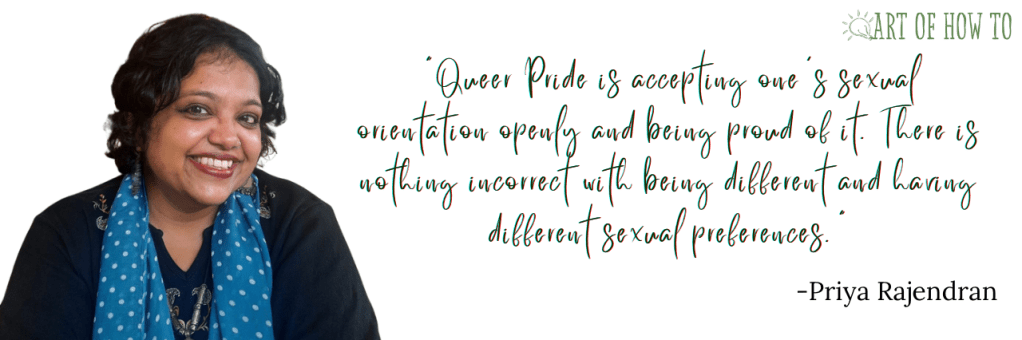 ART OF HOW TO
"Queer Pride is accepting one's sexual
orientation openly and being proud of it. There is
nothing incorrect with being different and having
different sexual preferences."
-Priya Rajendran